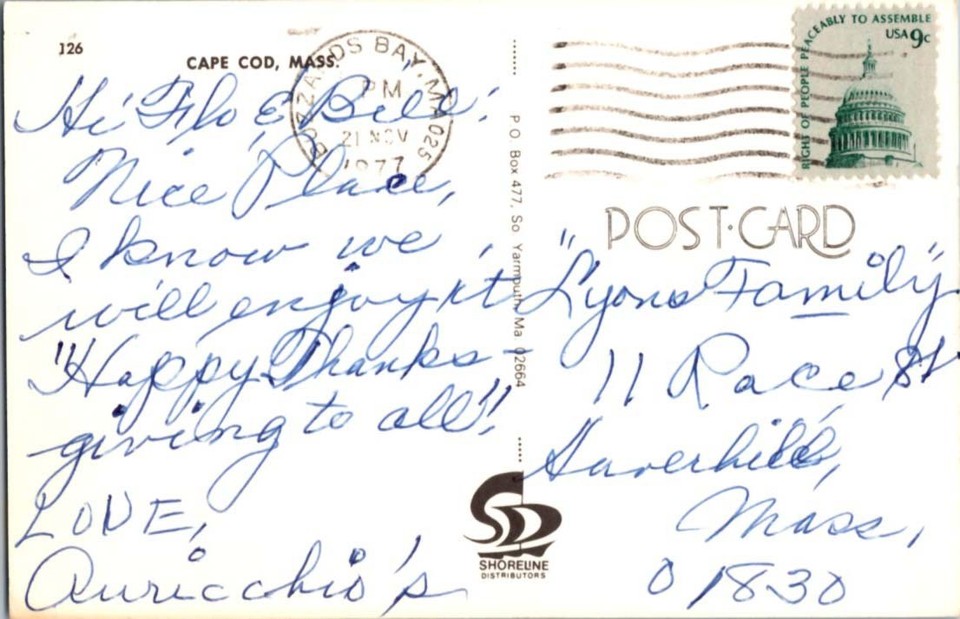 126
CAPE COD, MASS.
Hi Flo & Bill!
Nice Place,
I know we
will enjoy it.
"Happy Thanks-
giving to all"!
LOVE,
Auricchio's
BUZZARDS BAY, MA 025
PM
21 NOV
1977
P O Box 477, So Yarmouth Ma 02664
SHORELINE
DISTRIBUTORS
RIGHT OF PEOPLE PEACEABLY TO ASSEMBLE
USA 9c
POST·CARD
"Lyons Family"
11 Race St
Haverhill,
Mass,
01830